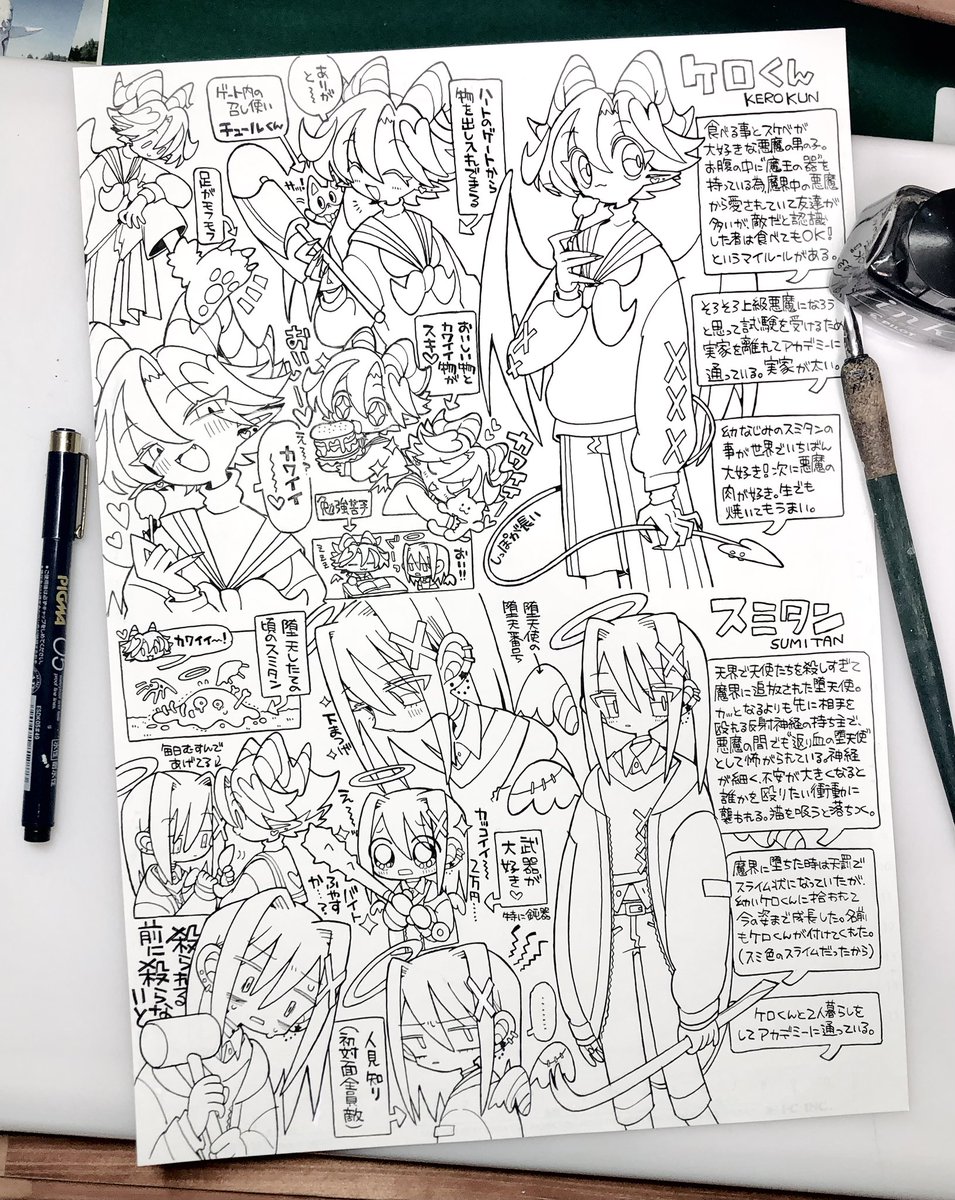 ケロくん
KEROKUN
食べる事とスケベが
大好きな悪魔の男の子。
お腹の中に"魔王の器"を
持っている為、魔界中の悪魔
から愛されていて友達が
多いが、敵だと認識
した者は食べてもOK!
というマイルールがある。
そろそろ上級悪魔になろう
と思って試験を受けるため
実家を離れてアカデミーに
通っている。実家が太い。
幼なじみのスミタンの
事が世界でいちばん
大好き!次に悪魔の
肉が好き。生でも
焼いてもうまい。
しっぽが長い
ハートのゲートから
物を出し入れできる
ありがと〜
ゲート内の
召し使い
チュールくん
サッ
おいしい物と
カワイイ物が
スキ♡
おーい
カワイイ
勉強苦手
おい!!
スミタン
SUMITAN
天界で天使たちを殺しすぎて
魔界に追放された堕天使。
カッとなるよりも先に相手を
殴れる反射神経の持ち主で、
悪魔の間でも"返り血の堕天使"
として怖がられている。神経
が細く、不安が大きくなると
誰かを殴りたい衝動に
襲われる。猫を吸うと落ちつく。
魔界に堕ちた時は天罰で
スライム状になっていたが、
幼いケロくんに拾われて
今の姿まで成長した。名前
もケロくんが付けてくれた。
(スミ色のスライムだったから)
ケロくんと2人暮らしを
してアカデミーに通っている。
堕天使の
堕天番号
下まつげ
堕天したての
頃のスミタン
カワイイ〜!
毎日むすんで
あげてる♪
え〜
カッコイイ〜
2万円…
バイト
ふやす
か…?
武器が
大好き♡
特に鈍器
殺られる
前に殺らな
いと
人見知り
(初対面全員敵
PIGMA
05